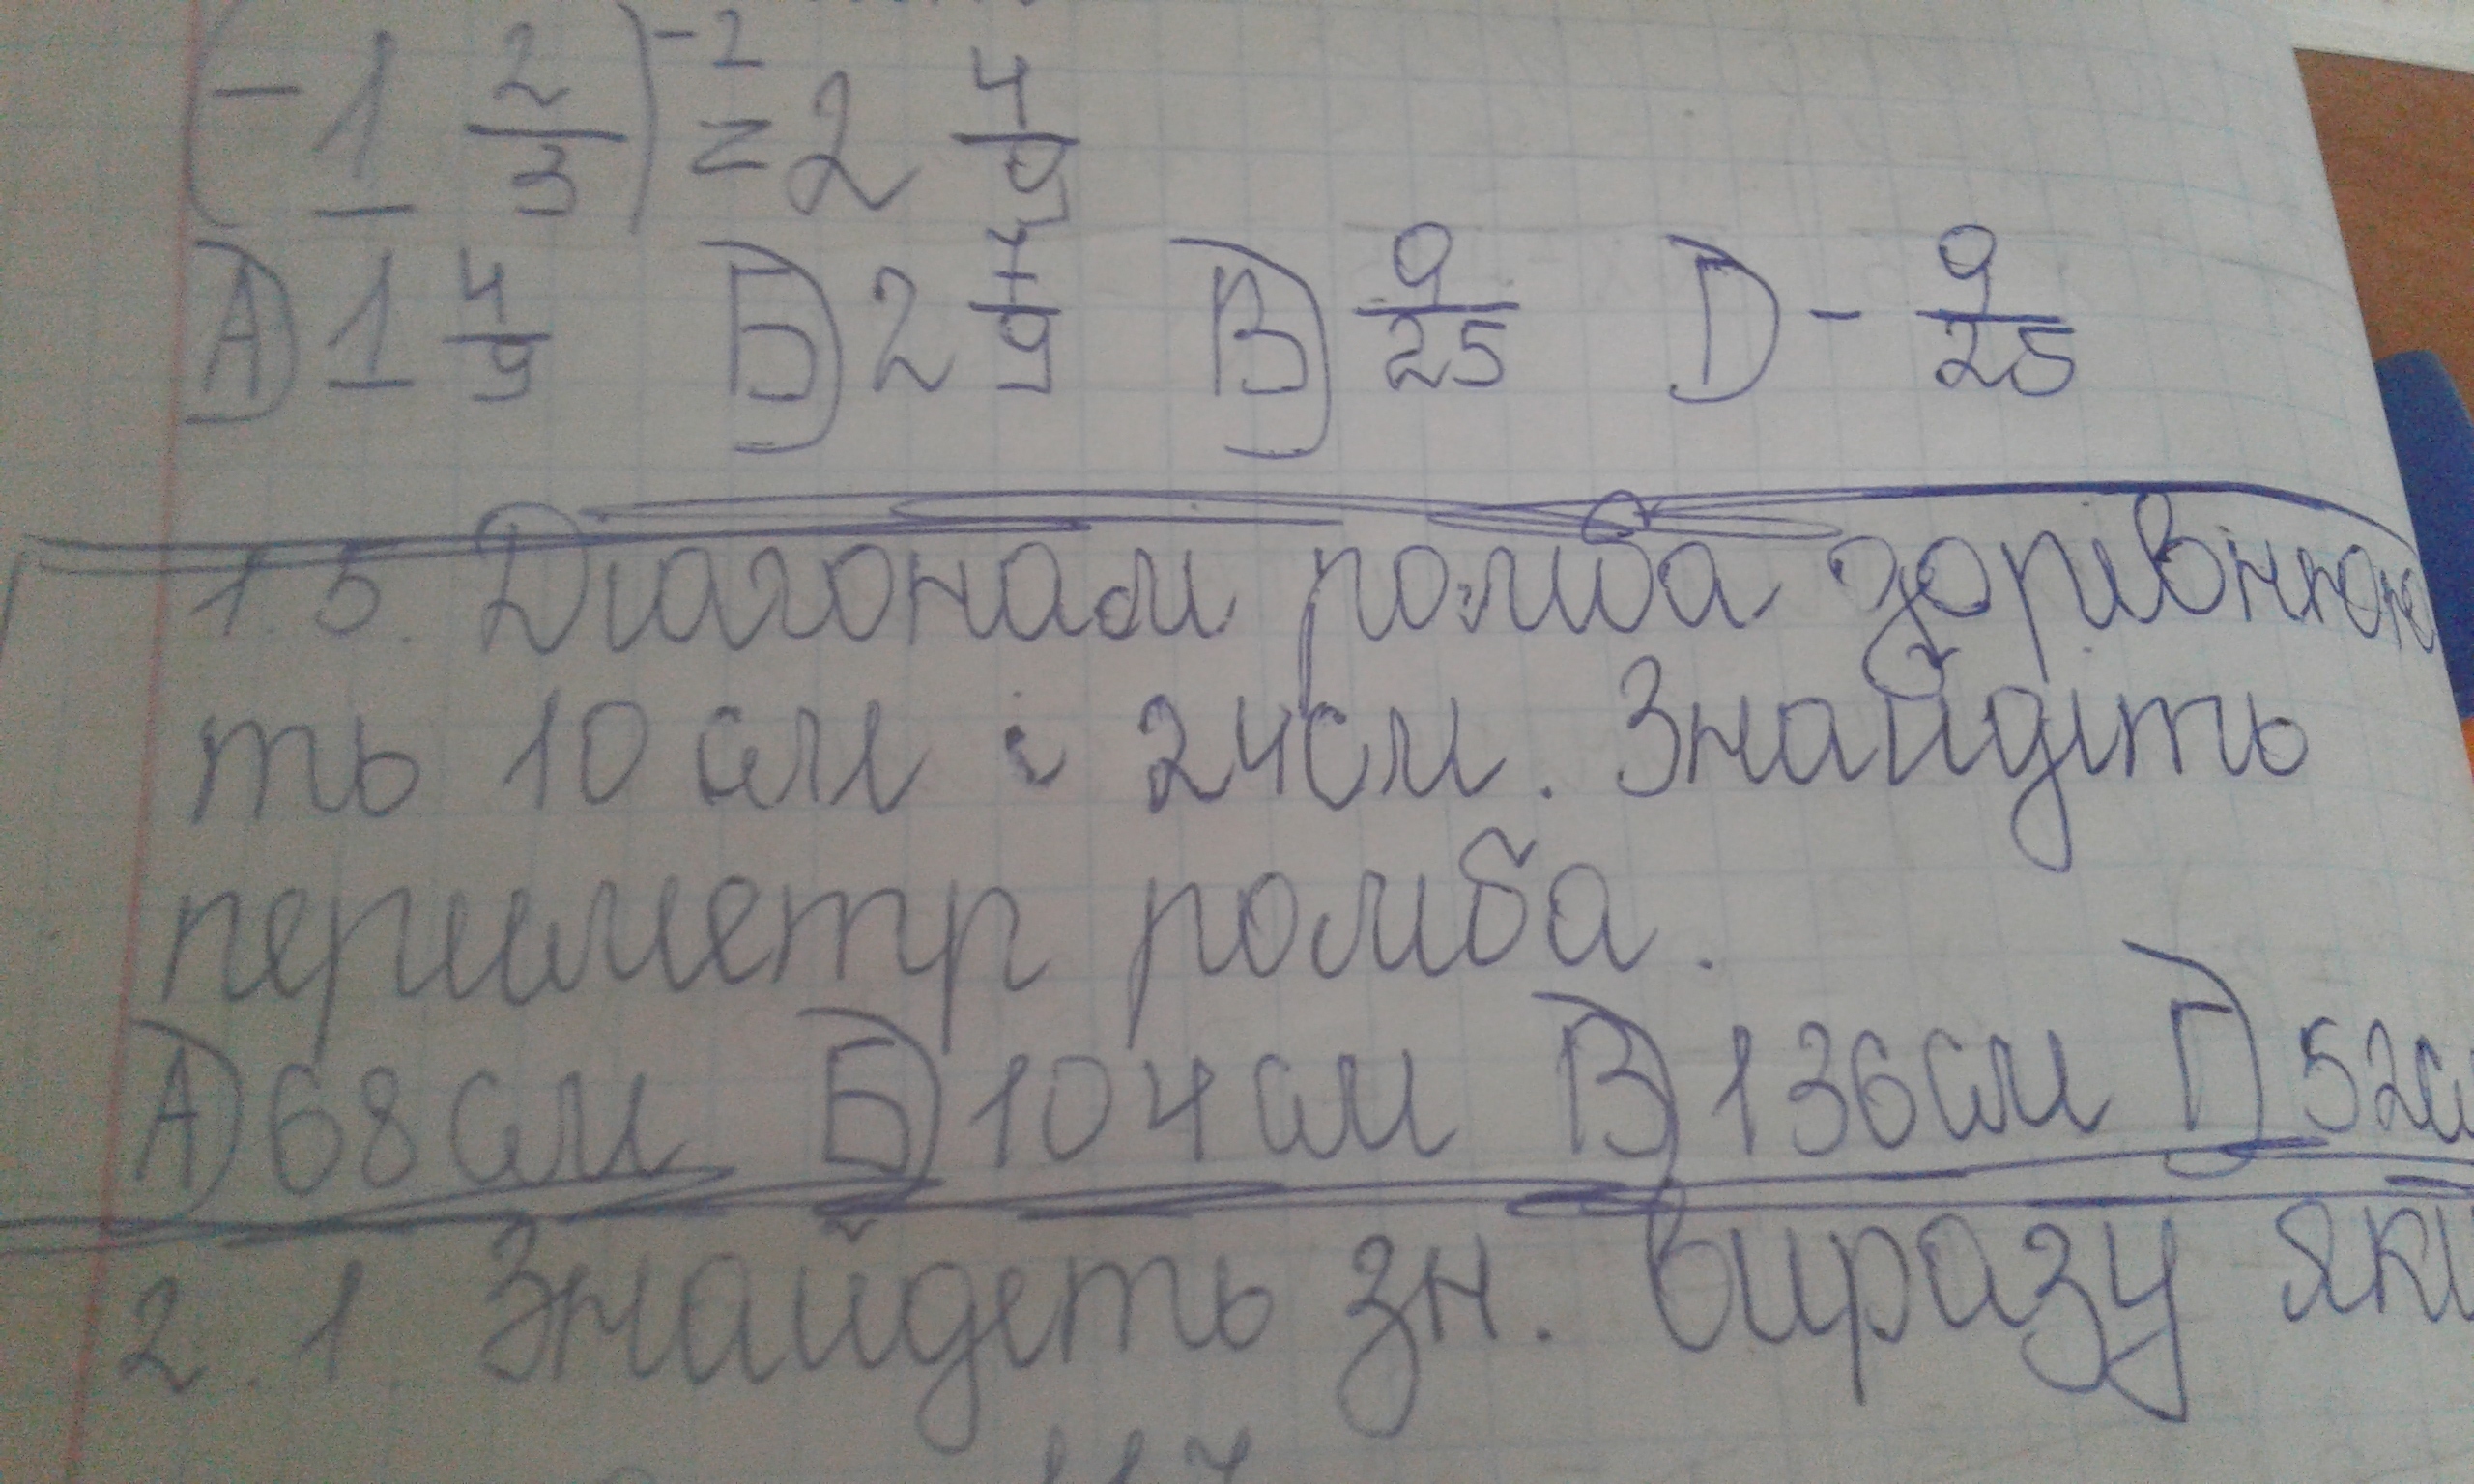 (-1 2/3)^-2 = 2 4/9
А) 1 4/9 Б) 2 7/9 В) 9/25 Г) - 9/25
1.5. Діагоналі ромба дорівнюю
ть 10 см і 24 см. Знайдіть
периметр ромба.
А) 68 см Б) 104 см В) 136 см Г) 52 см
2.1. Знайдіть зн. виразу